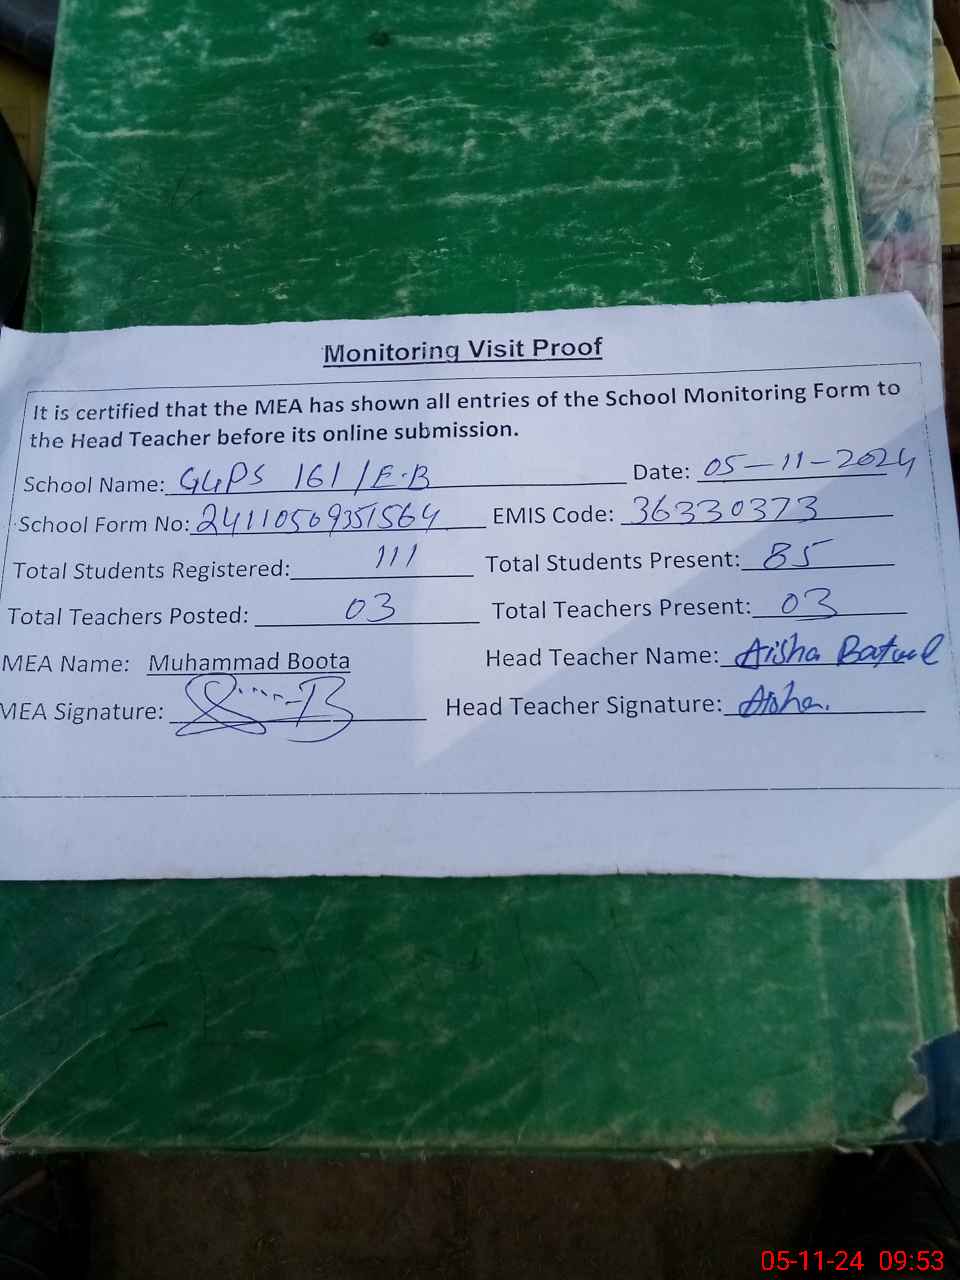 Monitoring Visit Proof
It is certified that the MEA has shown all entries of the School Monitoring Form to
the Head Teacher before its online submission.
School Name: GGPS 161/E.B Date: 05-11-2024
School Form No: 24110509351564 EMIS Code: 36330373
Total Students Registered: 111 Total Students Present: 85
Total Teachers Posted: 03 Total Teachers Present: 03
MEA Name: Muhammad Boota Head Teacher Name: Aisha Batool
MEA Signature: Head Teacher Signature: Aisha.
05-11-24 09:53